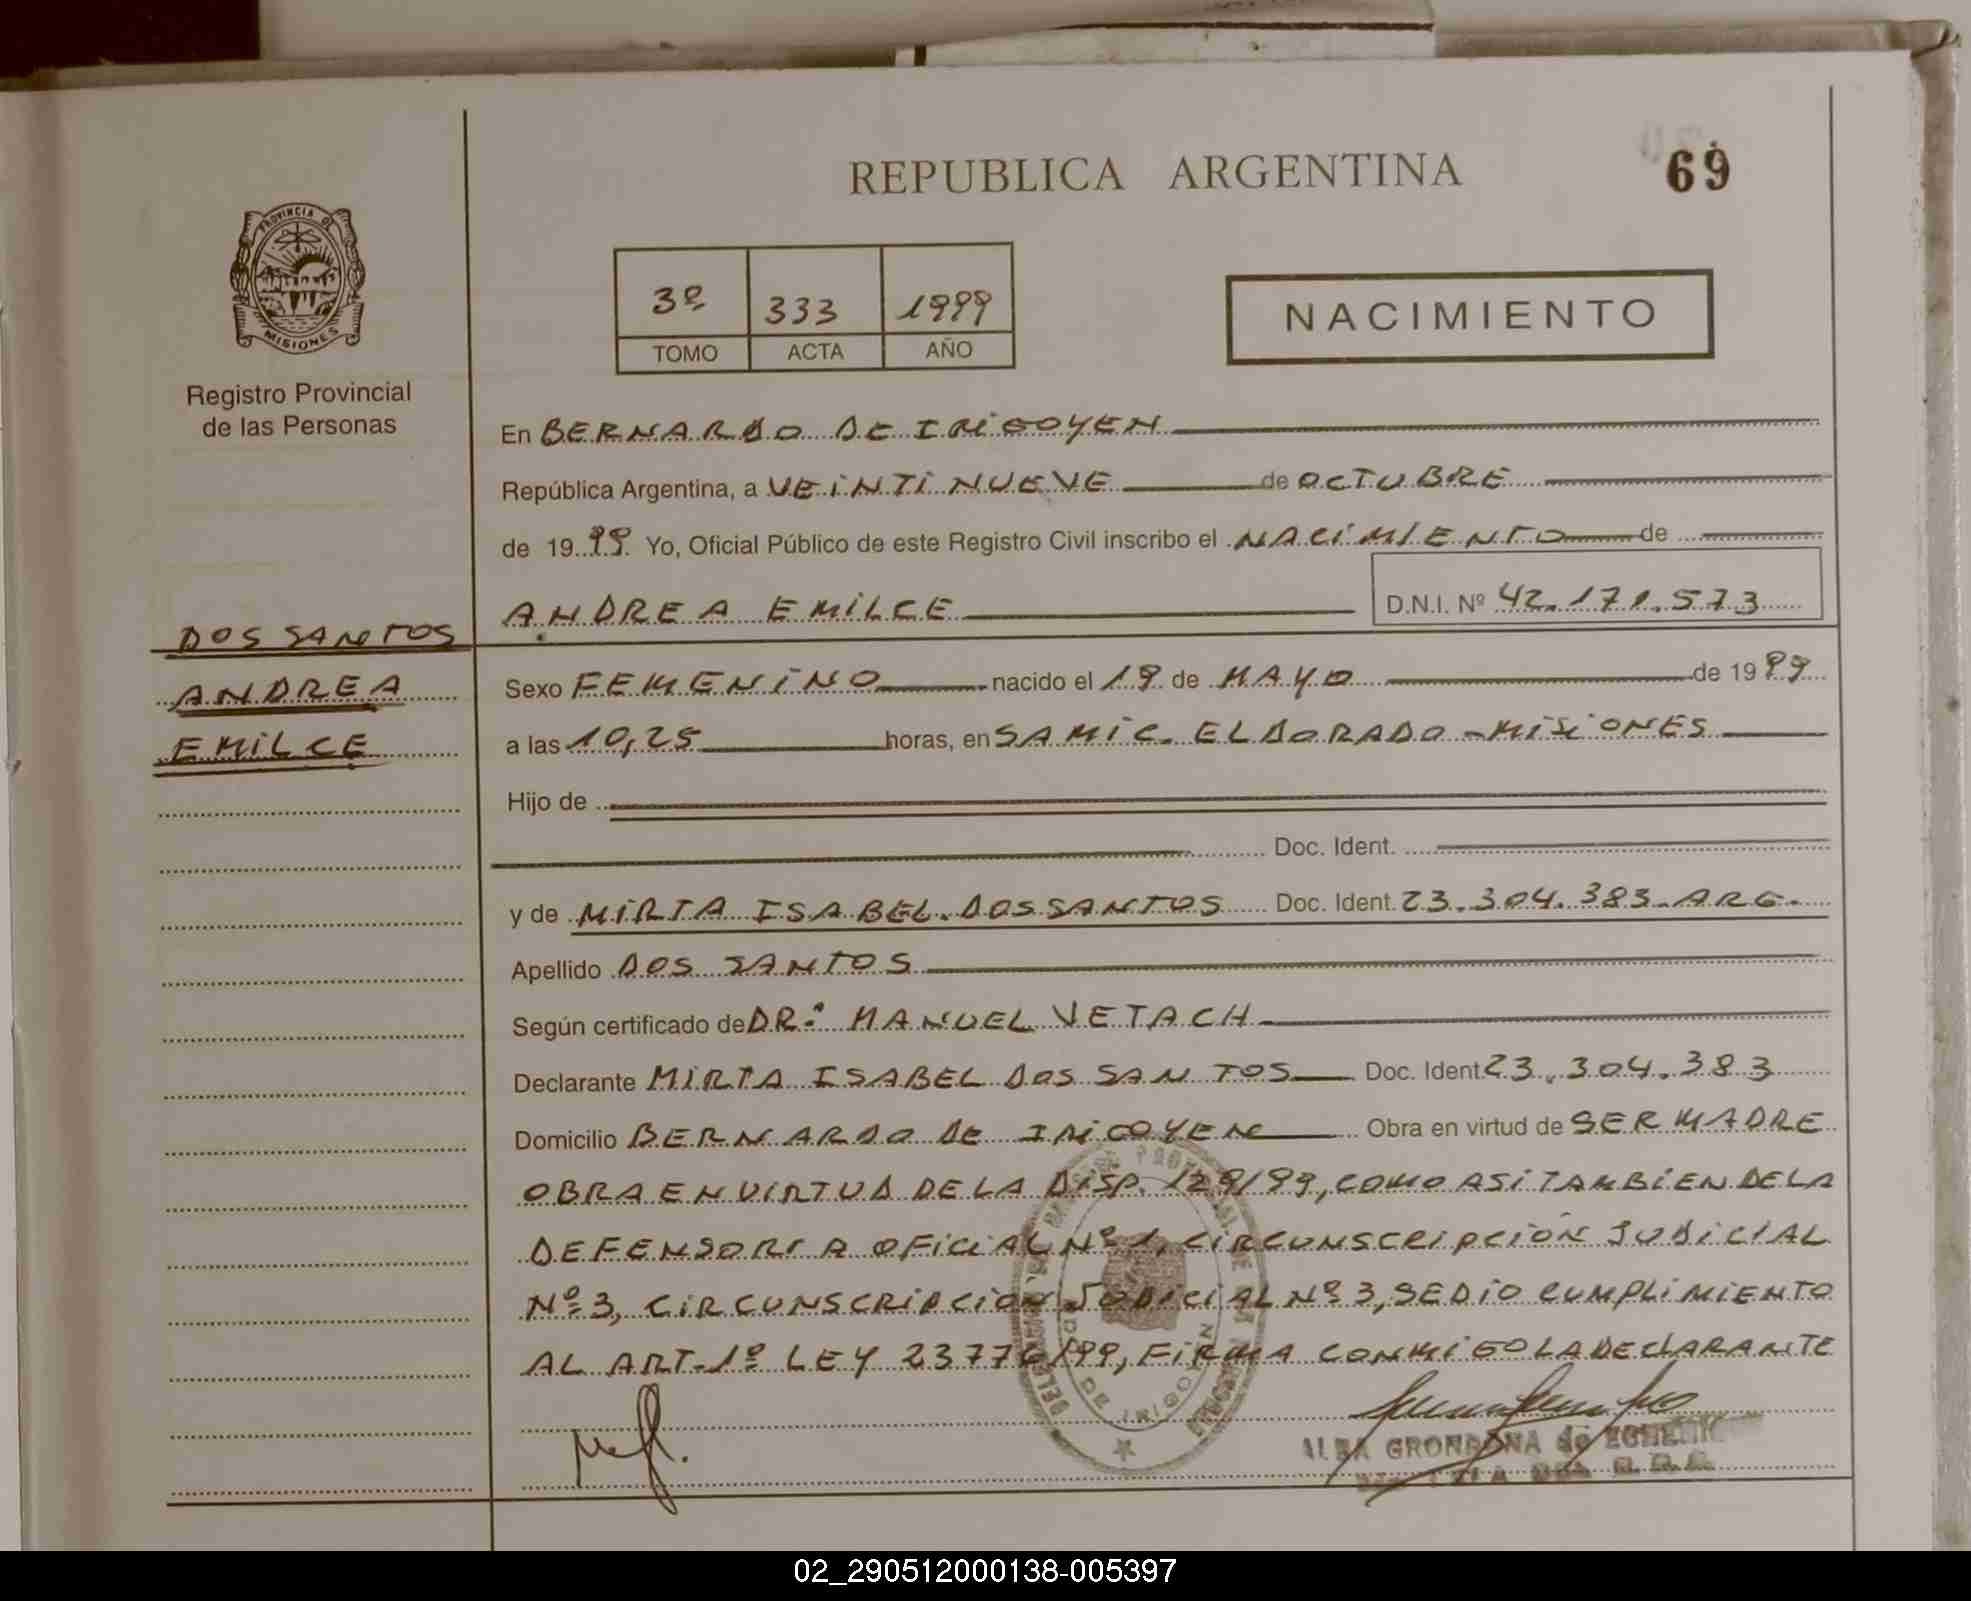 REPUBLICA ARGENTINA
69
PROVINCIA DE
MISIONES
Registro Provincial
de las Personas
3º 333 1999
TOMO ACTA AÑO
NACIMIENTO
En BERNARDO DE IRIGOYEN
República Argentina, a VEINTI NUEVE de OCTUBRE
de 1999 Yo, Oficial Público de este Registro Civil inscribo el NACIMIENTO de
ANDREA EMILCE D.N.I. Nº 42.171.573
DOS SANTOS
ANDREA
EMILCE
Sexo FEMENINO nacido el 19 de MAYO de 1999
a las 10,25 horas, en SAMIC. ELDORADO - MISIONES
Hijo de
Doc. Ident.
y de MIRTA ISABEL DOS SANTOS Doc. Ident. 23.304.383-ARG.
Apellido DOS SANTOS
Según certificado de DR: MANUEL VETACH
Declarante MIRTA ISABEL DOS SANTOS Doc. Ident. 23.304.383
Domicilio BERNARDO DE IRIGOYEN Obra en virtud de SER MADRE
OBRA EN VIRTUD DE LA DISP. 129/99, COMO ASI TAMBIEN DE LA
DEFENSORIA OFICIAL Nº 1, CIRCUNSCRIPCION JUDICIAL
Nº 3, CIRCUNSCRIPCION JUDICIAL Nº 3, SE DIO CUMPLIMIENTO
AL ART. 1º LEY 23776/99, FIRMA CONMIGO LA DECLARANTE
ALBA GRONDONA de
02_290512000138-005397